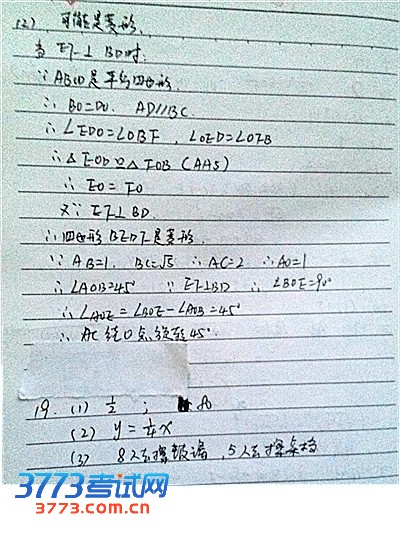 (2) 可能是菱形.
当EF⊥BD时.
∵ABCD是平行四边形.
∴BO=DO. AD//BC.
∴∠EDO=∠OBF, ∠OED=∠OFB
∴△EOD≌△FOB (AAS)
∴EO=FO
又∵EF⊥BD.
∴四边形BEDF是菱形.
∵AB=1. BC=√5 ∴AC=2 ∴AO=1
∴∠AOB=45° ∵EF⊥BD ∴∠BOE=90°
∴∠AOE=∠BOE-∠AOB=45°
∴AC绕O点旋转45°.
19. (1) 1/2 ;
(2) y=1/4x
(3) 8人去擦玻璃, 5人去擦桌
3773考试网
3773.com.cn